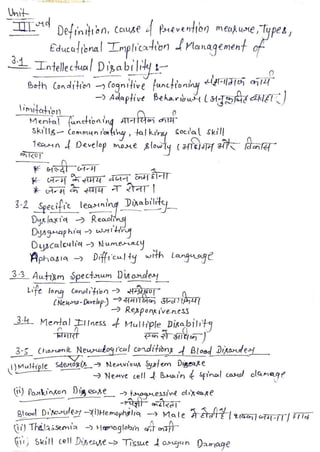 Unit-
III rd Definition, cause & Prevention measure, Types,
Educational Implication & Management of
3.1 Intellectual Disability :-
Both Condition → Cognitive functioning संज्ञानात्मक कार्य
→ Adaptive Behaviour (अनुकूलित व्यवहार)
limitation
Mental functioning मानसिक कार्य
Skills - Communicating, talking social skill
Learn & Develop more slowly (अधिगम और विकास
कारण
* जल्दी जन्म
* जन्म के समय वजन कम होना
* जन्म के समय न रोना।
3.2 Specific learning Disability
Dyslexia → Reading
Dysgraphia → writing
Dyscalculia → Numeracy
Aphasia → Difficulty with Language
3.3 Autism Spectrum Disorder
Life long Condition → सम्प्रेषण
(Neuro-Develop-) → सामाजिक अन्तःक्रिया
→ Responsiveness
3.4 Mental Illness & Multiple Disability
बीमारी एक से अधिक)
3.5 Chronic Neurological conditions & Blood Disorder
(i) Multiple Sclerosis → Nervious System Disease
→ Nerve cell & Brain & spinal card damage
(ii) Parkinson Disease → progressive disease
Blood Disorder → (i) Hemophilia → Male में होती है
(ii) Thalassemia → Hemoglobin की कमी
(iii) Skill cell Disease → Tissue & orgun Damage